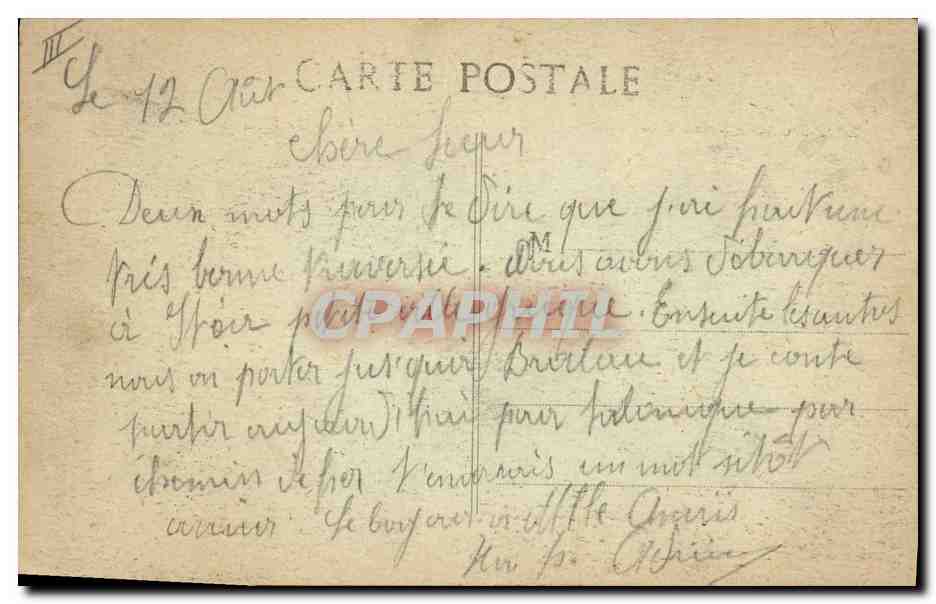 III
CARTE POSTALE
Le 12 Août
chère Soeur
Deux mots pour te Dire que j'ai fait une
très bonne traversée. Nous avons Débarquer
M
à petit ville grèque. Ensuite les autos
CPAPHIL
nous on porter jusqu'à et je conte
partir aujourd'hui pour salonique par
chemin de fer t'enverrais un mot sitôt
arriver. Le bonjour à Mlle